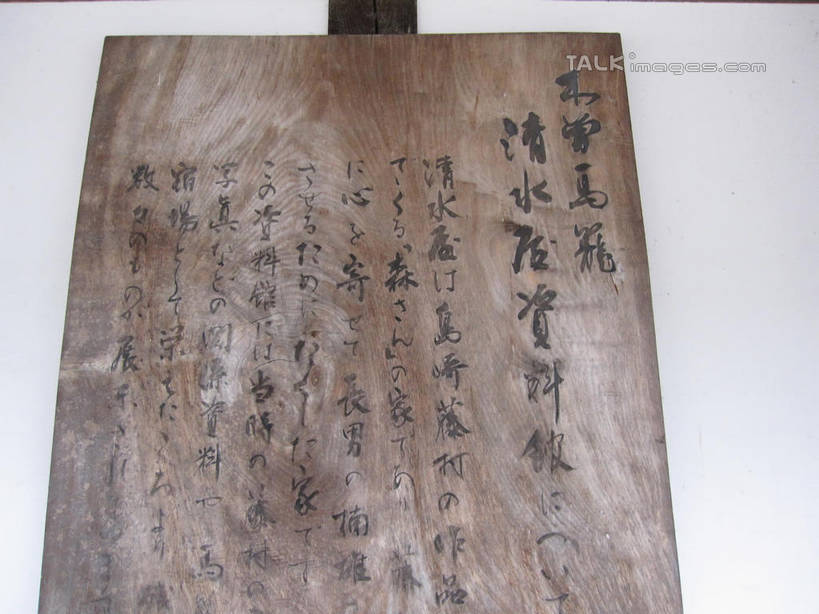 TALKimages.com
木曽馬籠
清水屋資料館について
清水屋は島崎藤村の作品
でてくる「森さん」の家であり 藤
に心を寄せて長男の楠雄
させるために た家です
この資料館には当時の藤村の
写真などの関係資料や馬
宿場として栄えた より
数々のものが展示されて